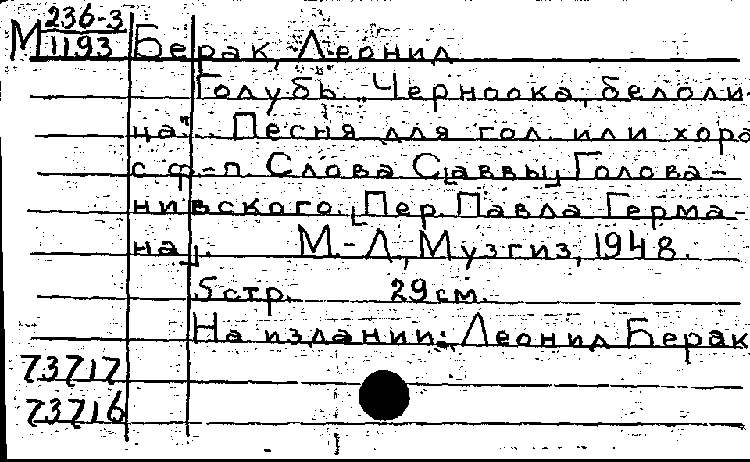 М 236-3
1193 Берак, Леонид
Голубь. „Черноока, белоли-
ца"... Песня для гол. или хора
с ф-п. Слова С[аввы] Голова-
нивского. [Пер. Павла Герма-
на]. М.-Л., Музгиз, 1948.
5 стр. 29 см.
На издании: Леонид Берак
73717
73716